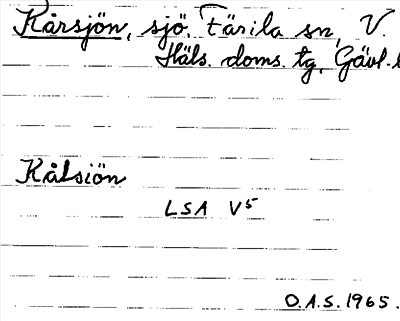 Kårsjön, sjö. Färila sn, V.
Häls. doms. tg, Gävl.
Kålsiön
LSA V5
O.A.S. 1965.